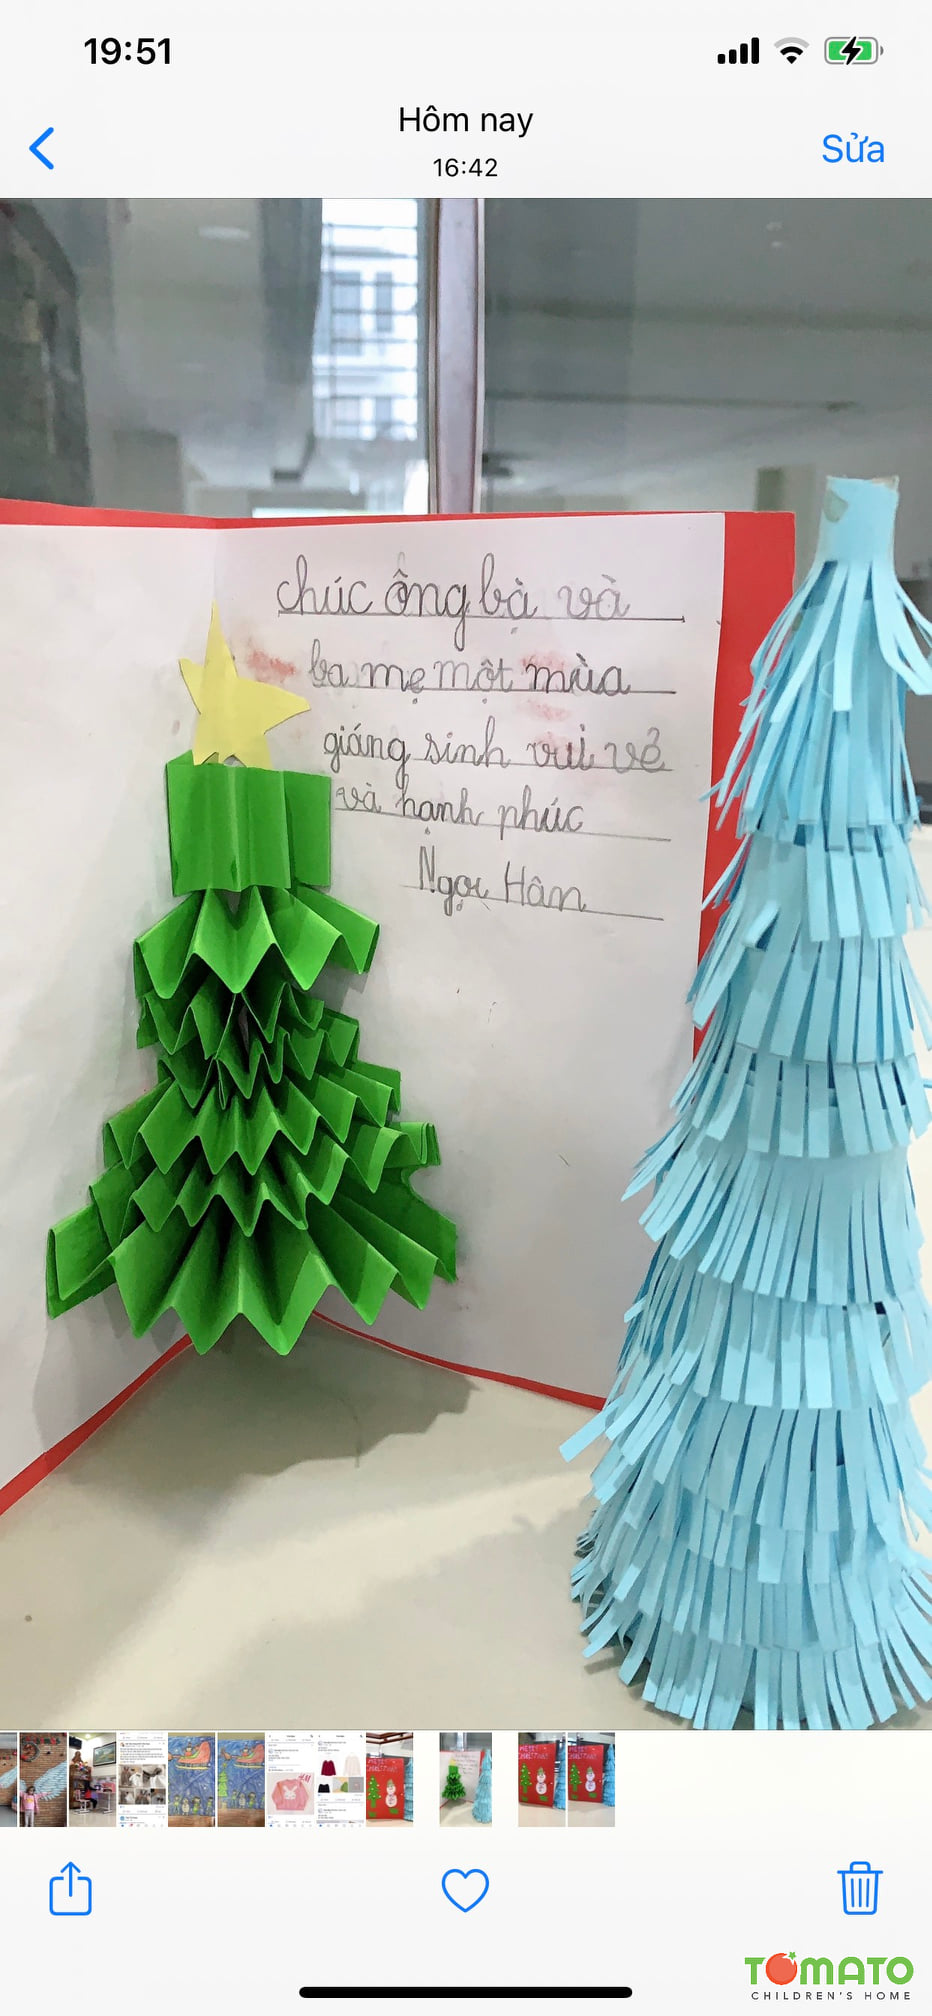 19:51
Hôm nay
16:42
Sửa
chúc ông bà và
ba mẹ một mùa
giáng sinh vui vẻ
và hạnh phúc
Ngọc Hân
TOMATO
CHILDREN'S HOME